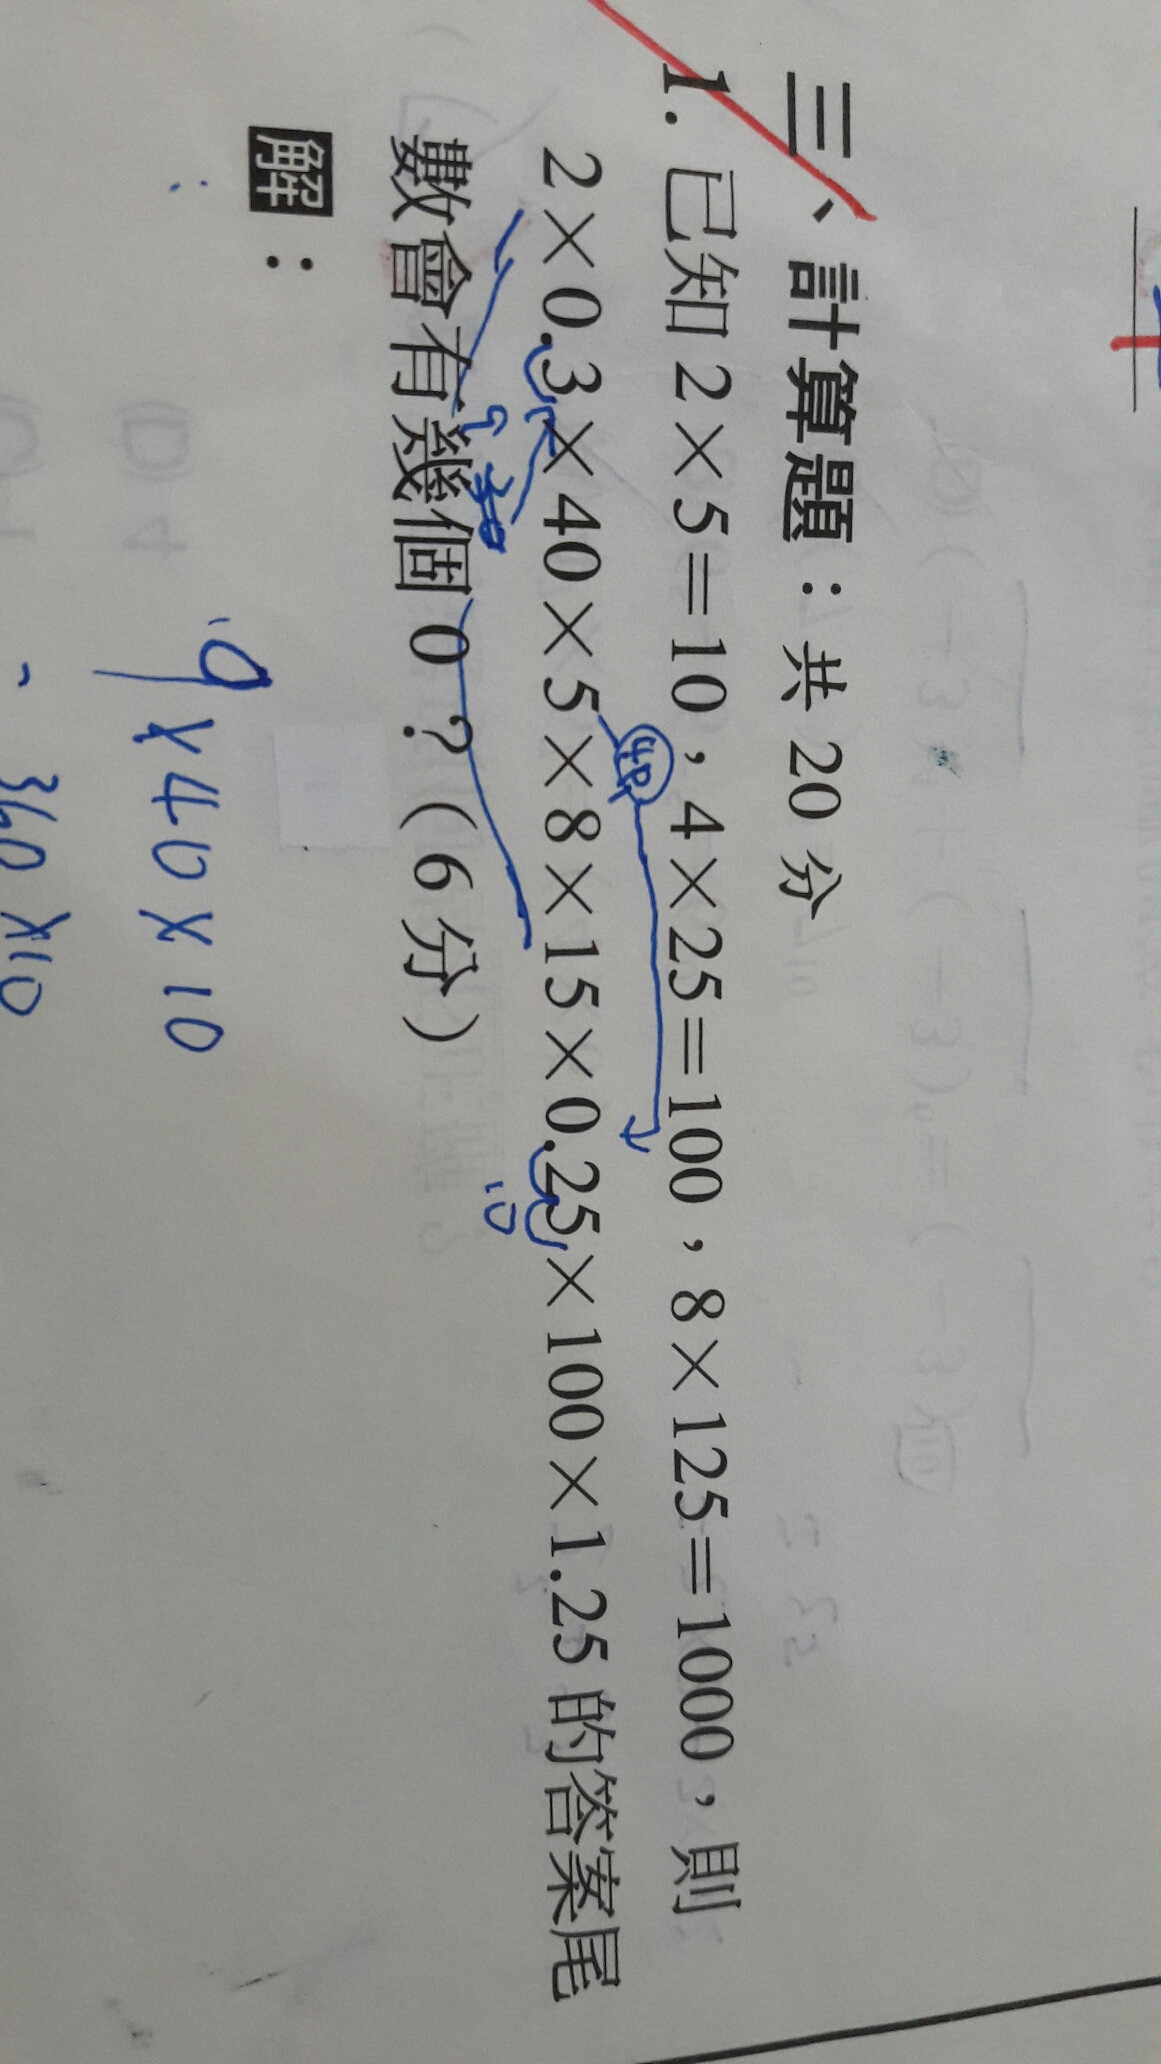 三、計算題：共 20 分
1. 已知 2×5=10，4×25=100，8×125=1000，則
40
2×0.3×40×5×8×15×0.25×100×1.25 的答案尾
數會有幾個 0？（6 分）
解：
9×40×10
= 360×10